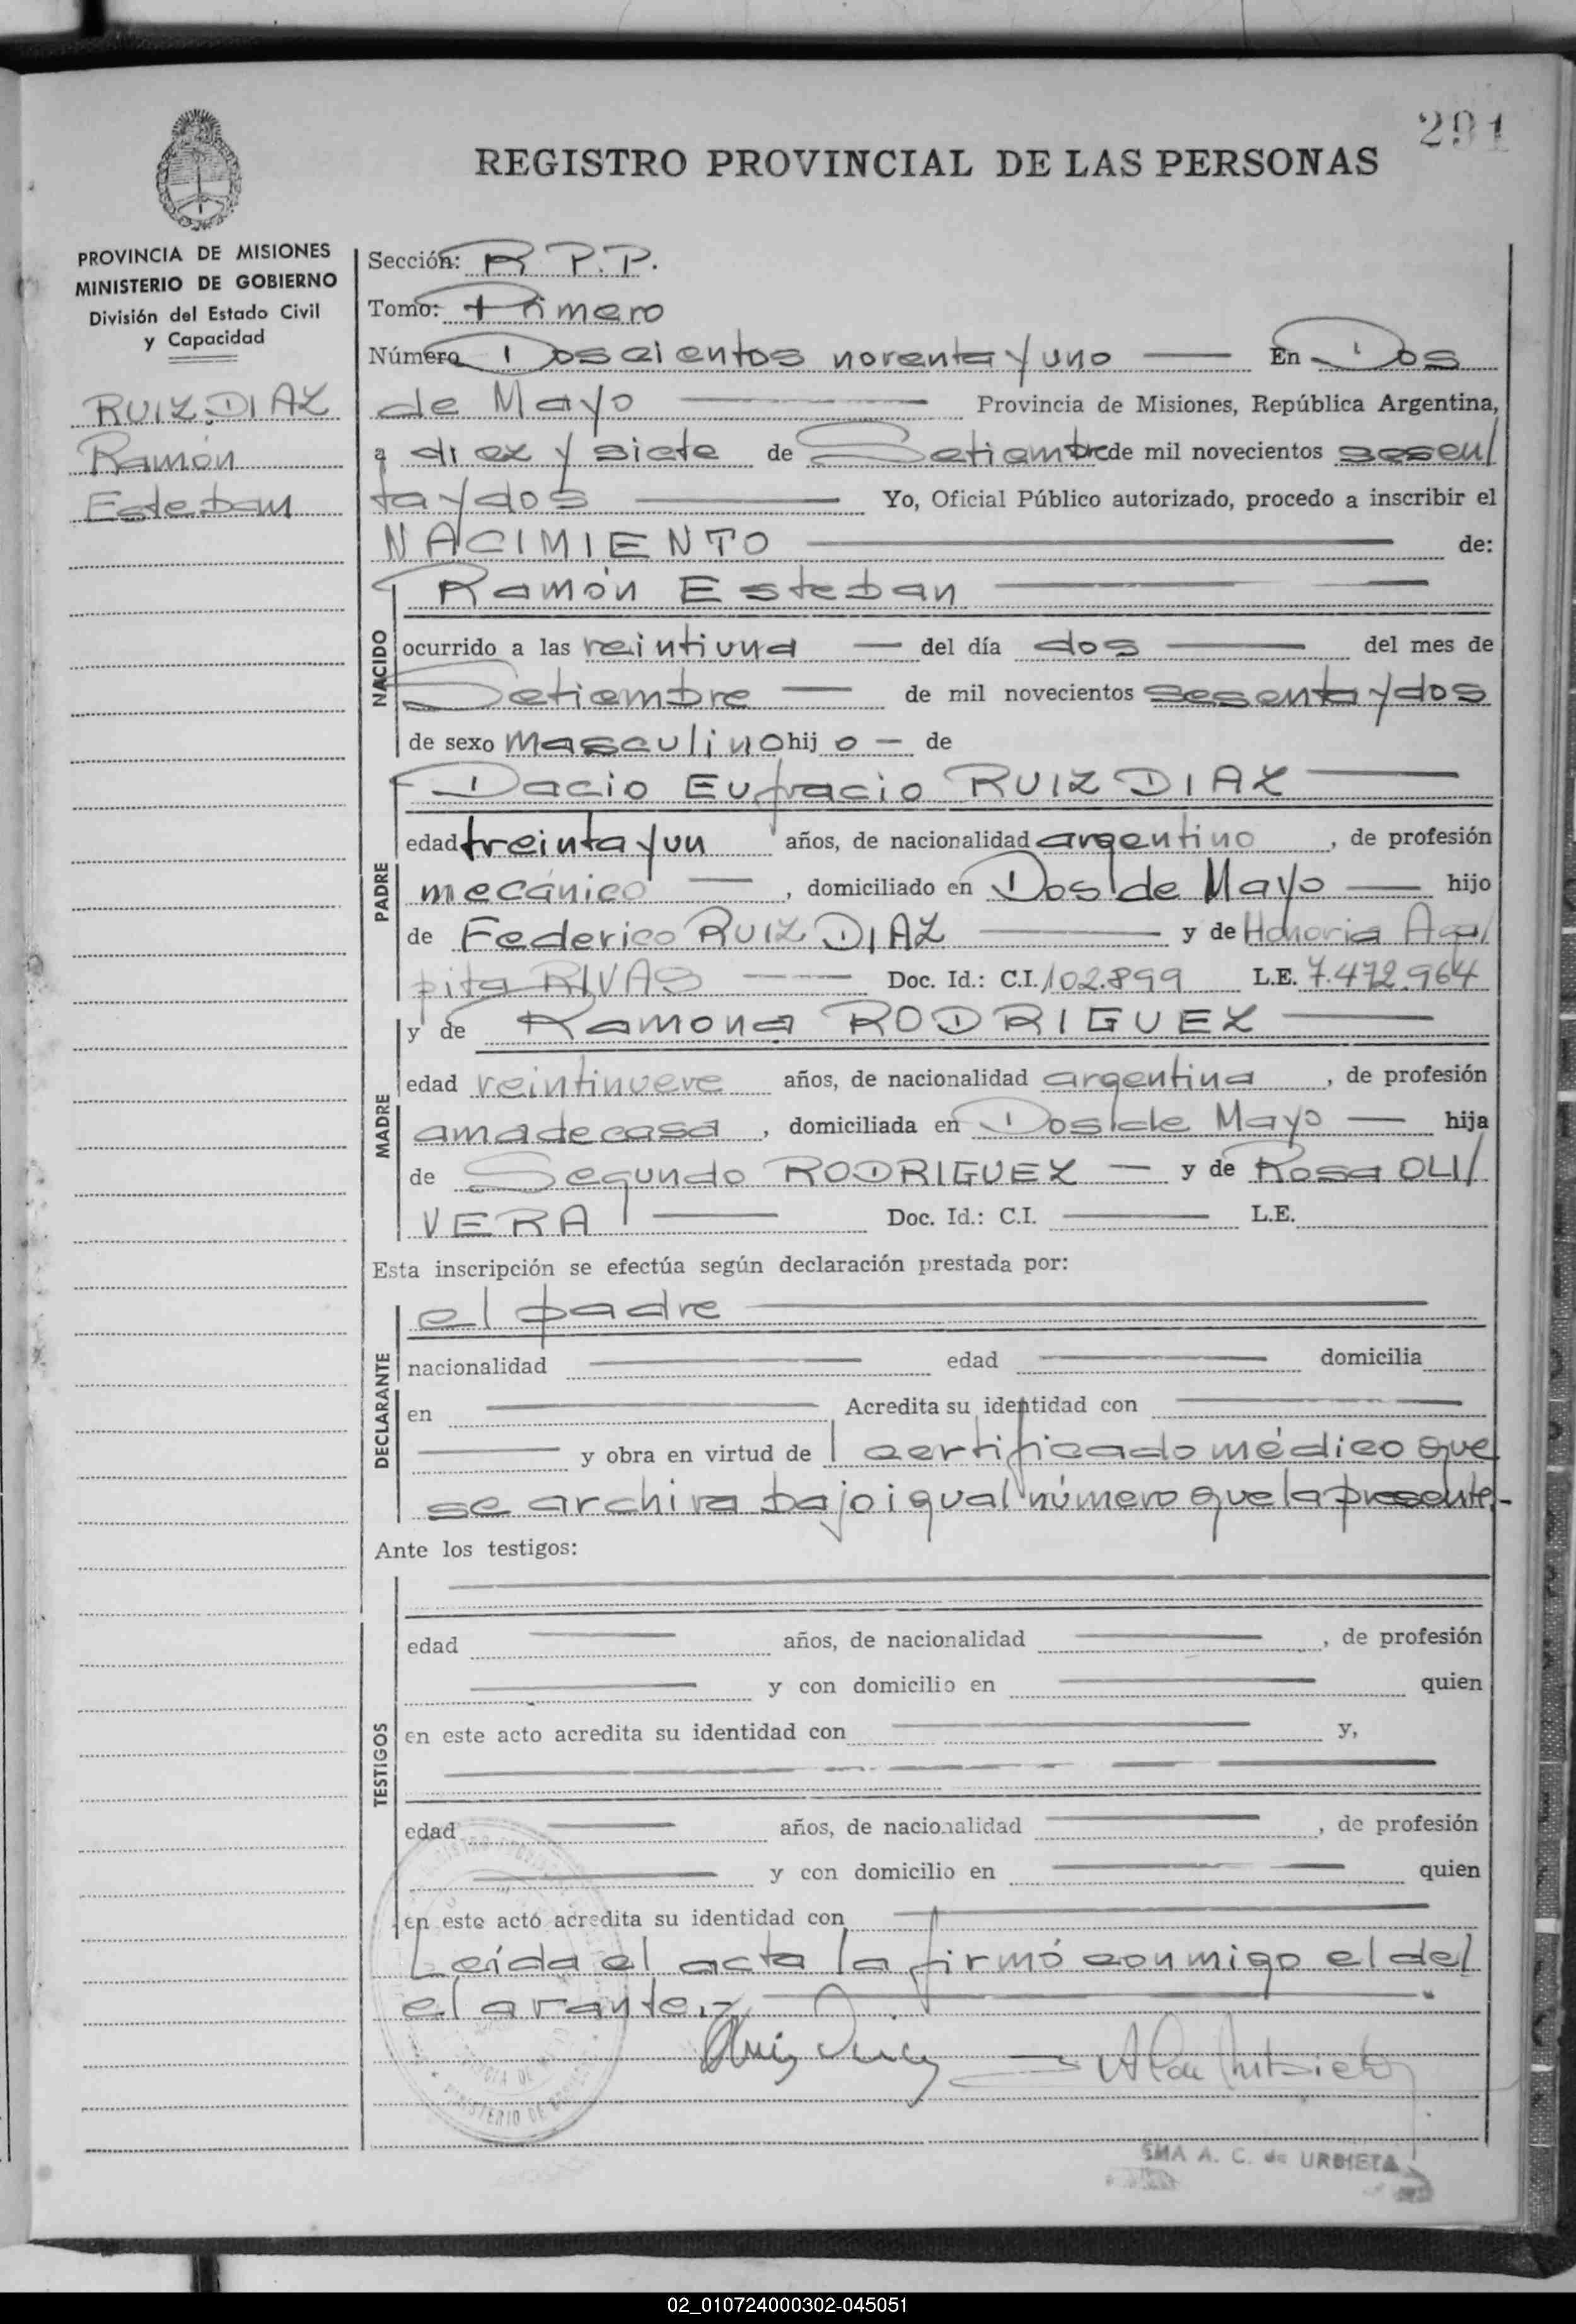 291
REGISTRO PROVINCIAL DE LAS PERSONAS
PROVINCIA DE MISIONES
MINISTERIO DE GOBIERNO
División del Estado Civil
y Capacidad
RUIZ DIAZ
Ramón
Esteban
Sección: R P.P.
Tomo: Primero
Número Doscientos noventa y uno — En Dos
de Mayo — Provincia de Misiones, República Argentina,
a diez y siete de Setiembre de mil novecientos sesen/
ta y dos — Yo, Oficial Público autorizado, procedo a inscribir el
NACIMIENTO — de:
NACIDO
Ramón Esteban —
ocurrido a las veintiuna — del día dos — del mes de
Setiembre — de mil novecientos sesenta y dos
de sexo masculino hij o — de
PADRE
Dacio Eufracio RUIZ DIAZ —
edad treinta y un años, de nacionalidad argentino, de profesión
mecánico —, domiciliado en Dos de Mayo — hijo
de Federico RUIZ DIAZ — y de Honoria Aga/
pita RIVAS — Doc. Id.: C.I. 102.899 L.E. 7.472.964
MADRE
y de Ramona RODRIGUEZ —
edad veintinueve años, de nacionalidad argentina, de profesión
ama de casa, domiciliada en Dos de Mayo — hija
de Segundo RODRIGUEZ — y de Rosa OLI/
VERA — Doc. Id.: C.I. — L.E.
Esta inscripción se efectúa según declaración prestada por:
DECLARANTE
el padre —
nacionalidad — edad — domicilia
en — Acredita su identidad con —
— y obra en virtud de certificado médico que
se archiva bajo igual número que la presente.-
Ante los testigos:
TESTIGOS
edad — años, de nacionalidad —, de profesión
— y con domicilio en — quien
en este acto acredita su identidad con — y,
edad — años, de nacionalidad —, de profesión
— y con domicilio en — quien
en este acto acredita su identidad con —
Leída el acta la firmó conmigo el de/
clarante.-
MINISTERIO DE
A. C. de URBIETA
02_010724000302-045051